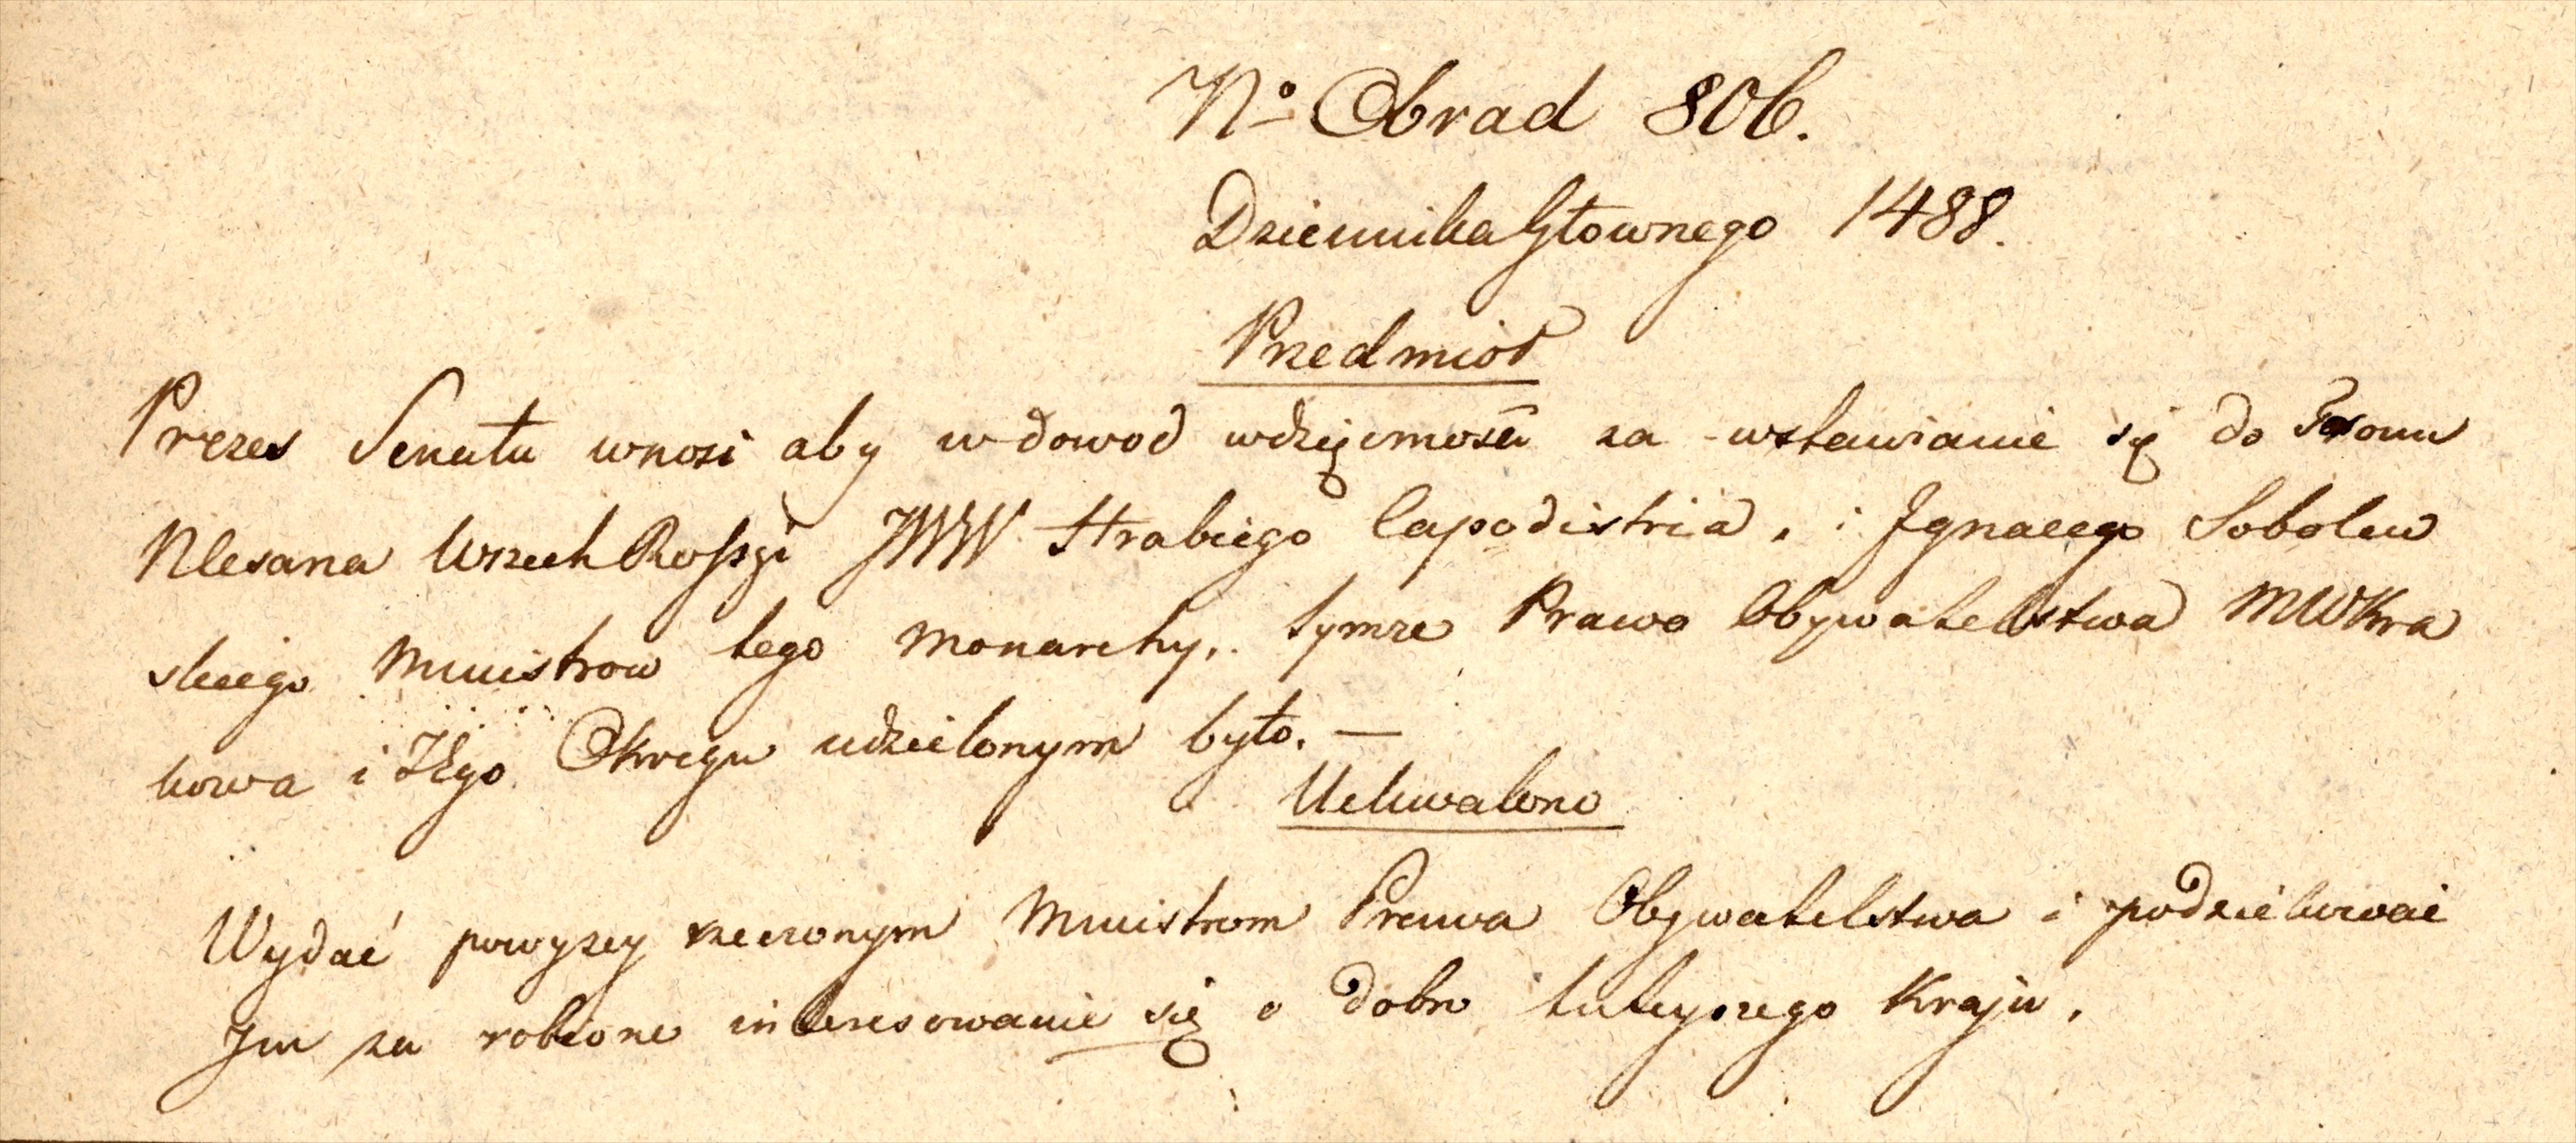 No Obrad 806.
Dziennika Głownego 1488.
Przedmiot
Prezes Senatu wnosi aby w dowod wdzięczności za wstawianie się do Tronu
Nlesana Wszech Rossyi JWW. Hrabiego Capodistria, i Ignacego Solobew
skiego Ministrow tego Monarchy, tymże Prawo Obywatelstwa MWKra
kowa i Jego Okręgu udzielonym było. —
Uchwalono
Wydać powyzey rzeczonym Ministrom Prawa Obywatelstwa i podziekować
Im za robione interesowanie się o dobro tuteyszego Kraju.